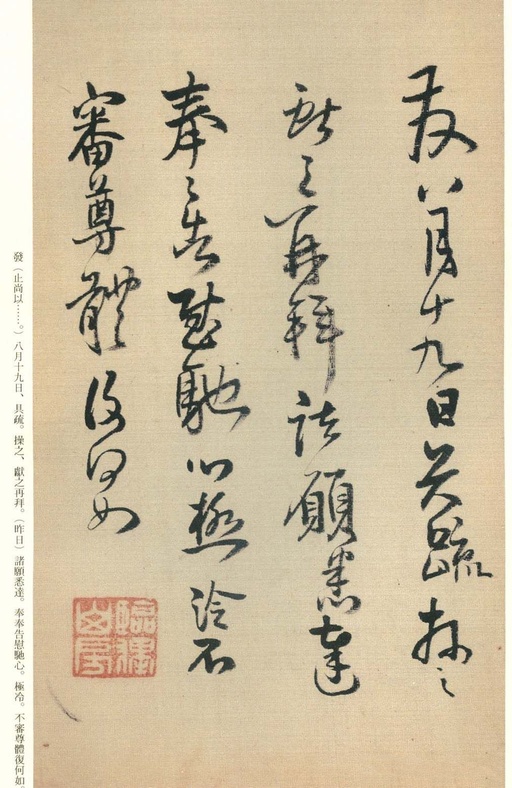 發八月十九日具疏操之
獻之再拜諸願悉達
奉〻告慰馳心極冷不
審尊體復何如
山房
發(止尚以……。)八月十九日、具疏。操之、獻之再拜。(昨日)諸願悉達。奉奉告慰馳心。極冷。不審尊體復何如。